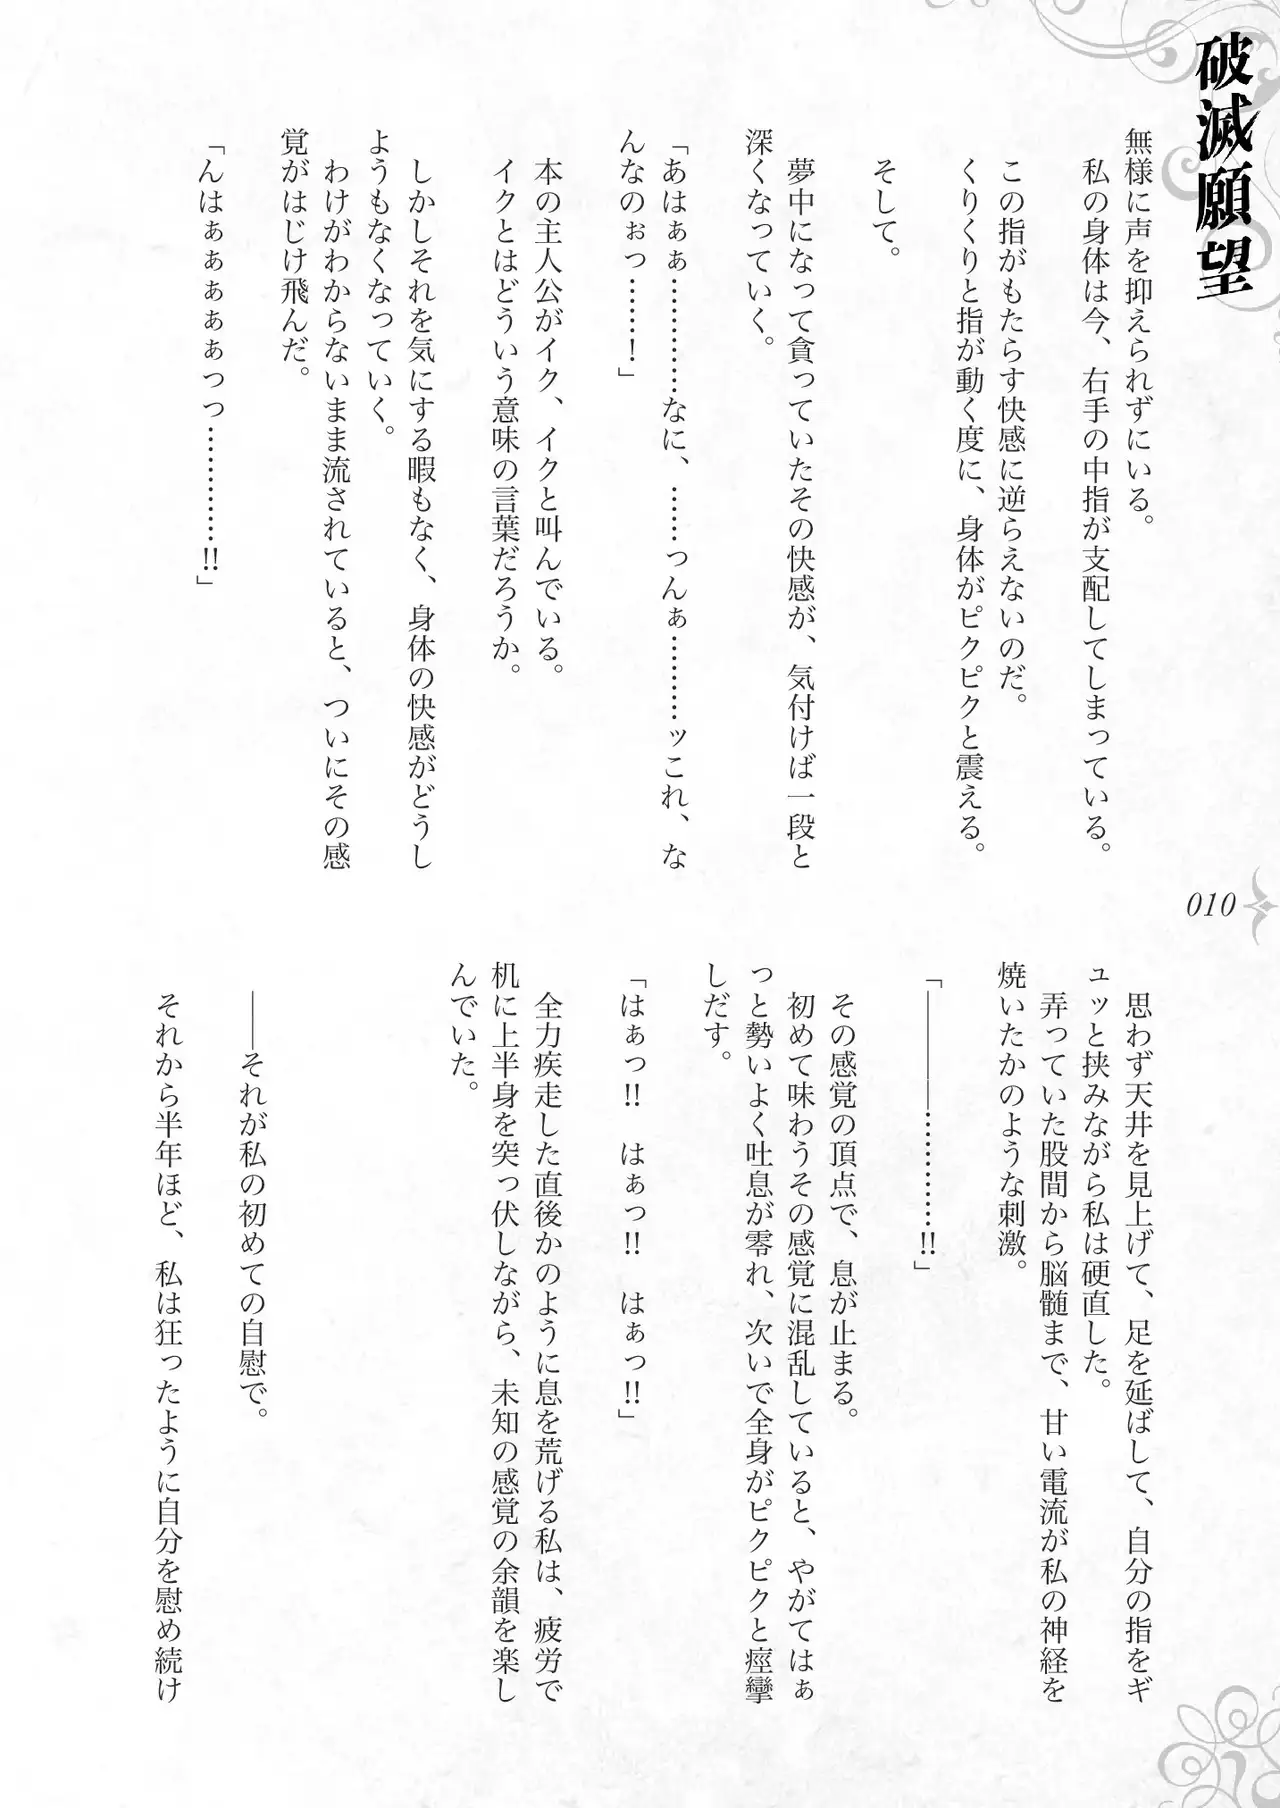 破滅願望
無様に声を抑えられずにいる。
私の身体は今、右手の中指が支配してしまっている。
この指がもたらす快感に逆らえないのだ。
くりくりと指が動く度に、身体がピクピクと震える。
そして。
夢中になって貪っていたその快感が、気付けば一段と
深くなっていく。
「あはぁぁ…………なに、……っんぁ………ッこれ、な
んなのぉっ……！」
本の主人公がイク、イクと叫んでいる。
イクとはどういう意味の言葉だろうか。
しかしそれを気にする暇もなく、身体の快感がどうし
ようもなくなっていく。
わけがわからないまま流されていると、ついにその感
覚がはじけ飛んだ。
「んはぁぁぁぁぁっっ…………!!」
010
思わず天井を見上げて、足を延ばして、自分の指をギ
ュッと挟みながら私は硬直した。
弄っていた股間から脳髄まで、甘い電流が私の神経を
焼いたかのような刺激。
「――――…………!!」
その感覚の頂点で、息が止まる。
初めて味わうその感覚に混乱していると、やがてはぁ
っと勢いよく吐息が零れ、次いで全身がピクピクと痙攣
しだす。
「はぁっ!!　はぁっ!!　はぁっ!!」
全力疾走した直後かのように息を荒げる私は、疲労で
机に上半身を突っ伏しながら、未知の感覚の余韻を楽し
んでいた。
――それが私の初めての自慰で。
それから半年ほど、私は狂ったように自分を慰め続け